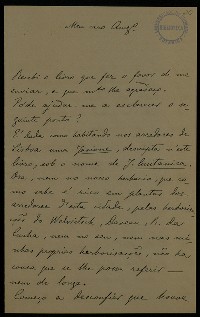 Meu caro Amigo.
Recebi o livro que fez o favor de me
enviar, e que muito lhe agradeço.
Póde ajudar-me a esclarecer o se-
guinte ponto?
É dada como habitando nos arredores de
Lisboa uma Jasione, descripta n'este
livro, sob o nome de J. lusitanica.
Ora, nem no nosso herbario, que co-
mo sabe é rico em plantas dos
arredores d'esta cidade, pelas herbori-
sações de Welwitsch, Daveau, R. da
Cunha, nem no seu, nem nas mi-
nhas proprias herborisações, não ha
cousa que se lhe possa referir —
nem de longe.
Começo a desconfiar que houve